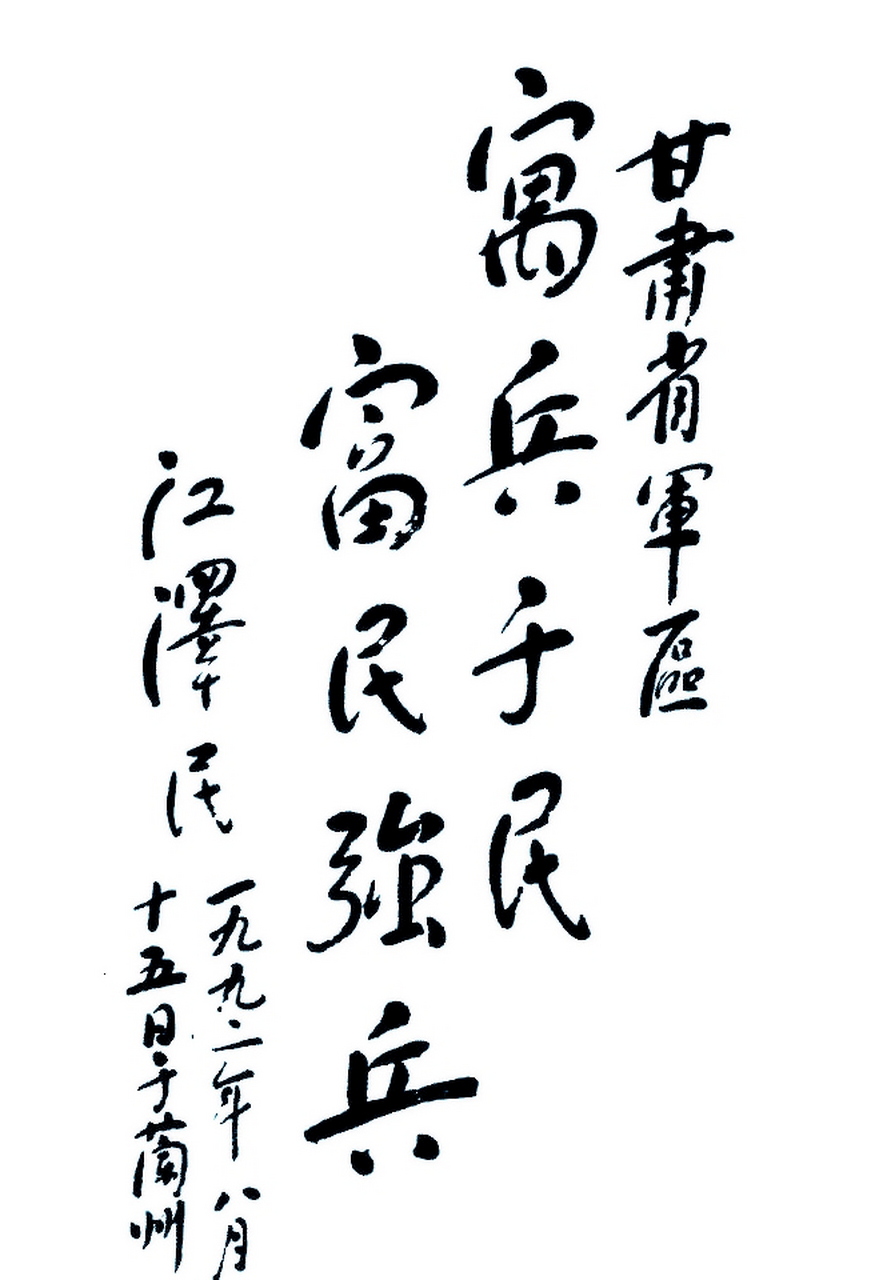 甘肅省軍區
寓兵于民
富民強兵
江澤民
一九九二年八月
十五日于蘭州